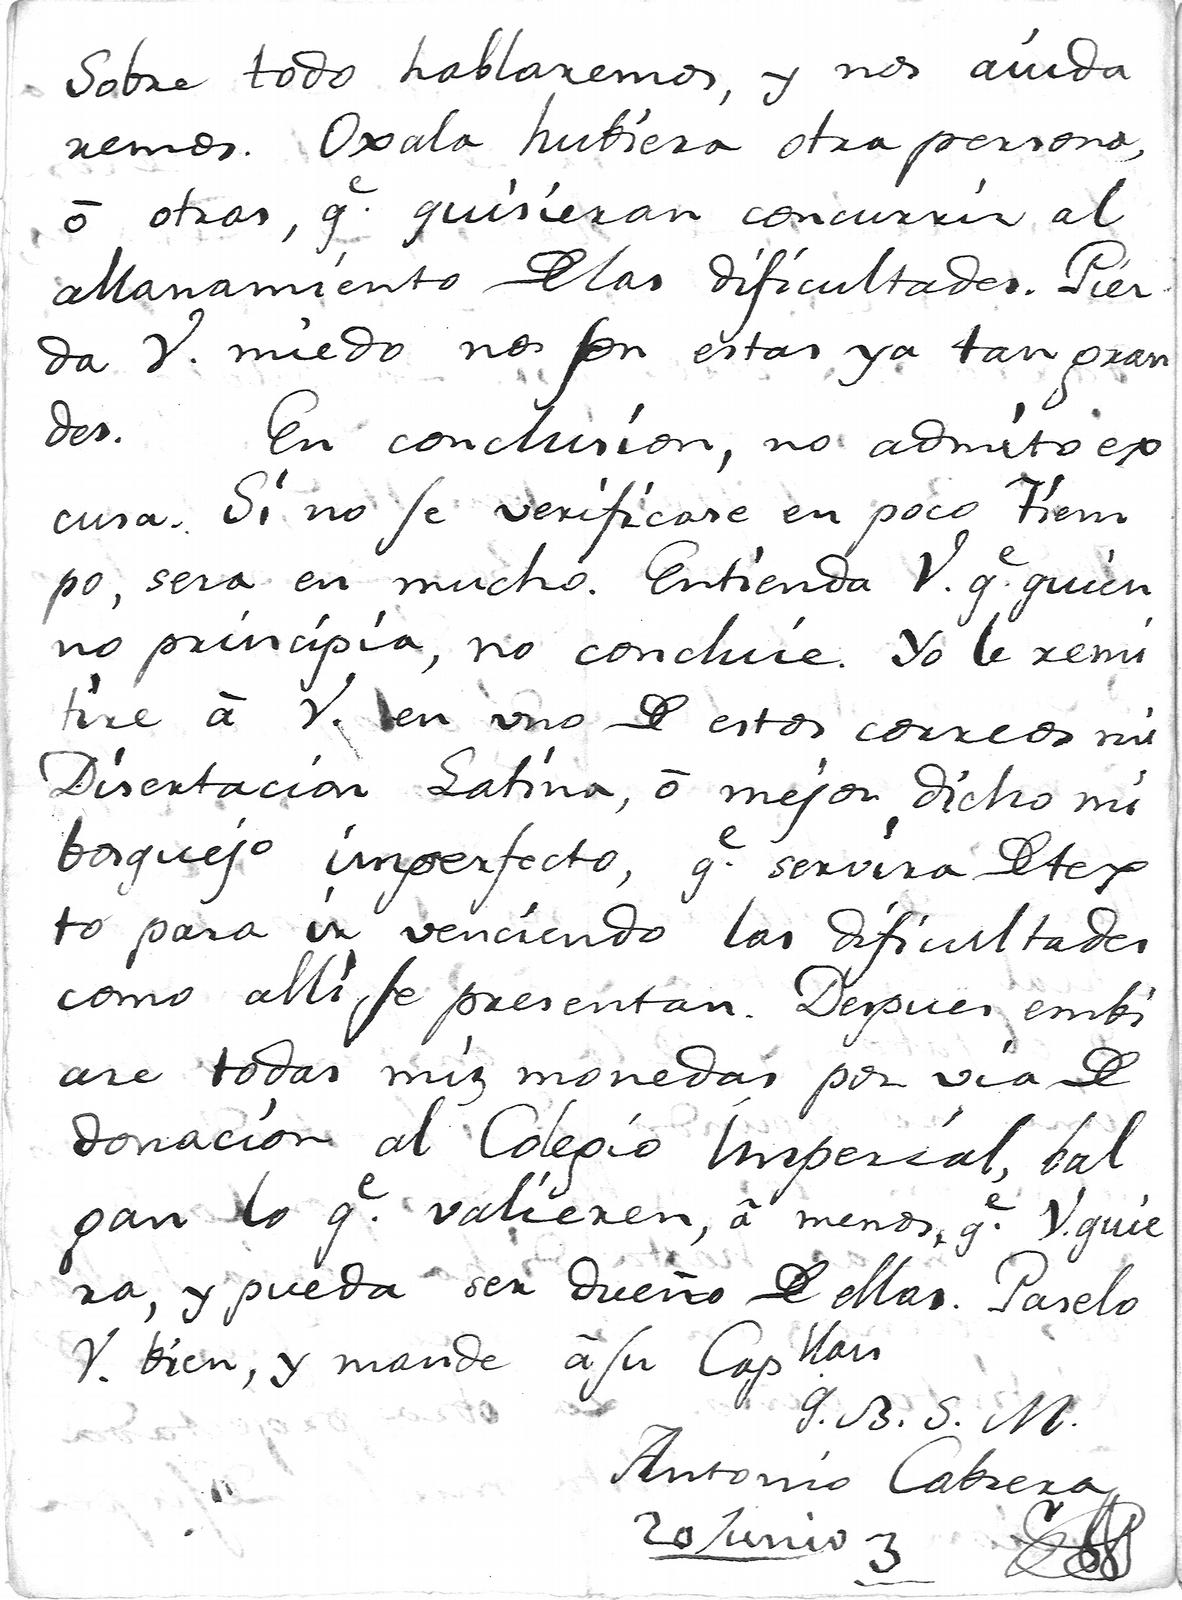 Sobre todo hablaremos, y nos aiuda
remos. Oxala hubiera otra persona,
ō otras, q.e quisieran concurrir al
allanamiento De las dificultades. Pier
da V. miedo nos son estas ya tan gran
des. En conclusion, no admito ex
cusa. Si no se verificare en poco tiem
po, sera en mucho. Entienda V. q.e quien
no principia, no concluie. Yo le remi
tire ā V. en uno De estos correos mi
Disertacion Latina, ō mejor dicho mi
bosquejo imperfecto, q.e servira De tex
to para ir venciendo las dificultades
como alli se presentan. Despues embi
are todas miz monedas por via De
donacion al Colegio Imperial, bal
gan lo q.e valieren, ā menos, q.e V. quie
ra, y pueda ser dueño De ellas. Paselo
V. bien, y mande ā su Capllan
q. B. S. M.
Antonio Cabrera
20 Junio 3